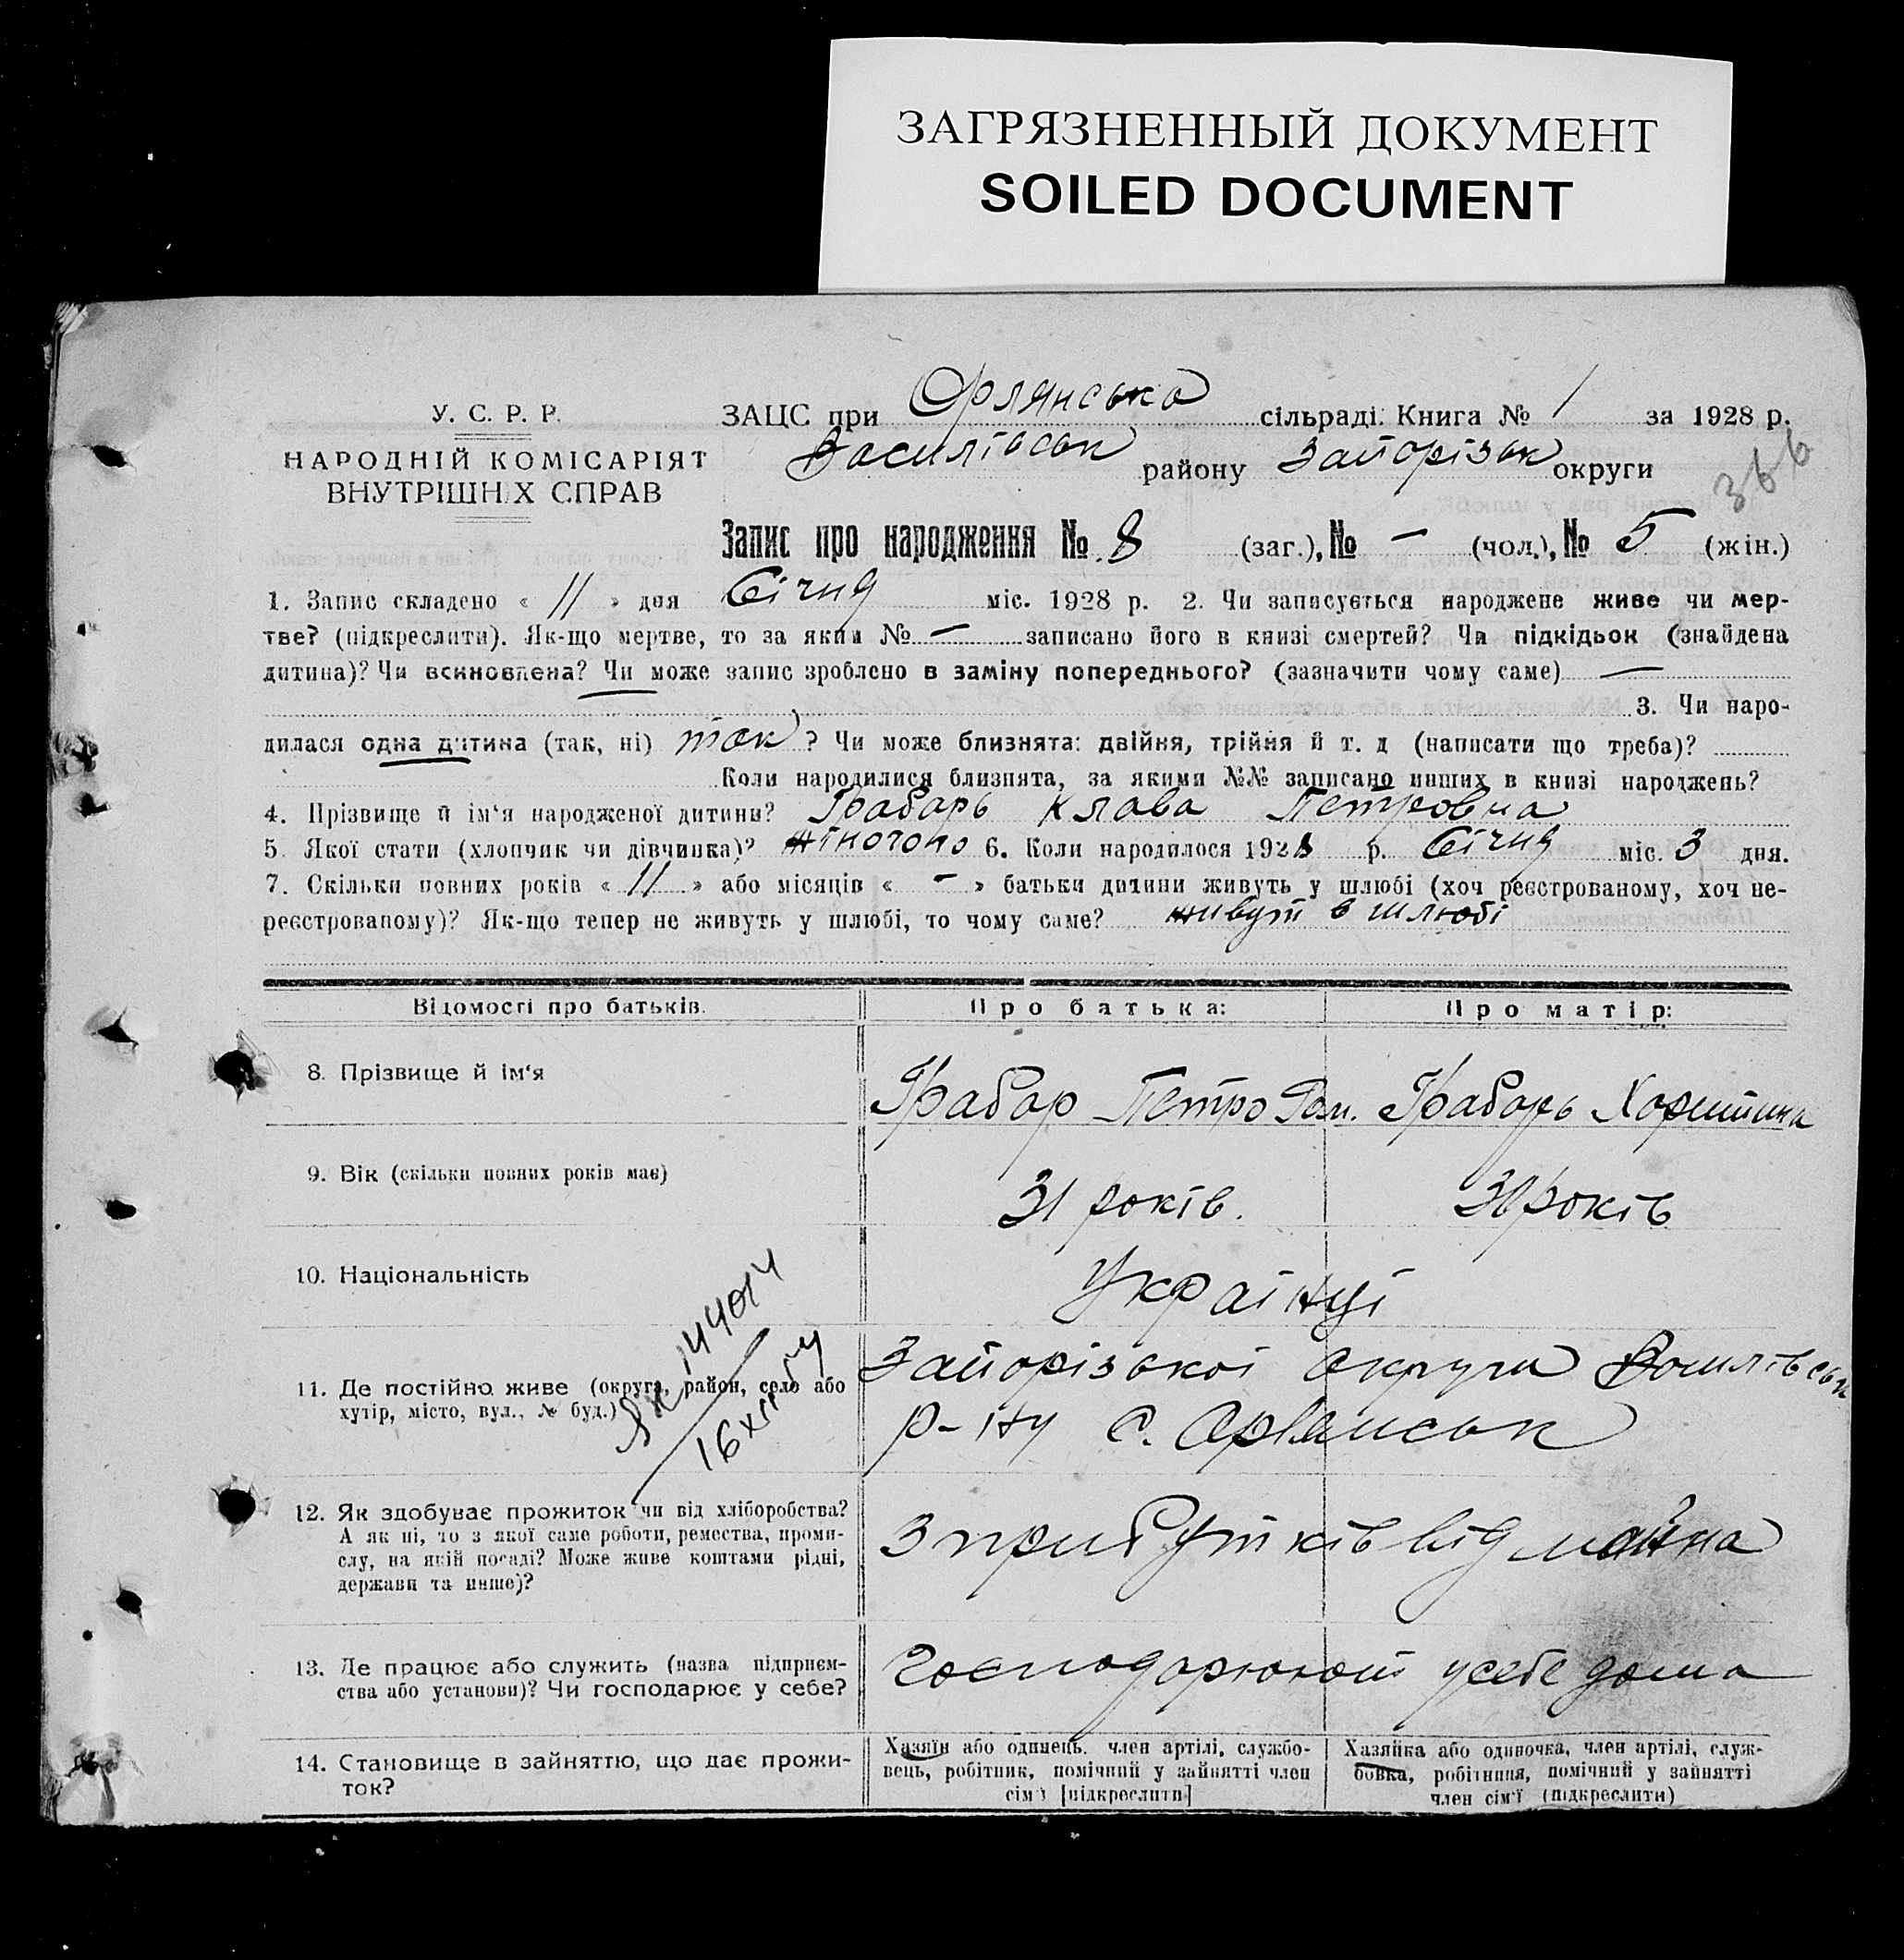 ЗАГРЯЗНЕННЫЙ ДОКУМЕНТ
SOILED DOCUMENT
У. С. Р. Р.
НАРОДНІЙ КОМІСАРІЯТ
ВНУТРІШНІХ СПРАВ
ЗАЦС при Орлянська сільраді. Книга № 1 за 1928 р.
Василівськ району Запорізьк округи
366
Запис про народження № 8 (заг.), № — (чол.), № 5 (жін.)
1. Запис складено « 11 » дня Січня міс. 1928 р. 2. Чи записується народжене живе чи мер-
тве? (підкреслити). Як-що мертве, то за яким № — записано його в книзі смертей? Чи підкідьок (знайдена
дитина)? Чи всиновлена? Чи може запис зроблено в заміну попереднього? (зазначити чому саме) —
3. Чи наро-
дилася одна дитина (так, ні) так ? Чи може близнята: двійня, трійня й т. д (написати що треба)?
Коли народилися близнята, за якими №№ записано инших в книзі народжень?
4. Прізвище й ім'я народженої дитини? Грабарь Клава Петровна
5. Якої стати (хлопчик чи дівчинка)? жіночого 6. Коли народилося 1928 р. Січня міс. 3 дня.
7. Скільки повних років « 11 » або місяців « - » батьки дитини живуть у шлюбі (хоч реєстрованому, хоч не-
реєстрованому)? Як-що тепер не живуть у шлюбі, то чому саме? живут в шлюбі
Відомості про батьків. Про батька: Про матір:
8. Прізвище й ім'я Грабар Петро Ром. Грабарь Харитина
9. Вік (скільки повних років має) 31 років. років
10. Національність Українці
11. Де постійно живе (округа, район, село або
хутір, місто, вул., № буд.)
Запорізької округи Василівськ
р-ну с. Орлянськ
12. Як здобуває прожиток чи від хліборобства?
А як ні, то з якої саме роботи, ремества, проми-
слу, на якій посаді? Може живе коштами рідні,
держави та инше)?
З прибутків від майна
13. Де працює або служить (назва підприєм-
ства або установи)? Чи господарює у себе?
Господарюют у себе дома
14. Становище в зайняттю, що дає прожи-
ток?
Хазяїн або одинець, член артілі, службо-
вець, робітник, помічний у зайнятті член
сім'ї [підкреслити]
Хазяйка або одиночка, член артілі, служ-
бовка, робітниця, помічний у зайнятті
член сім'ї (підкреслити)